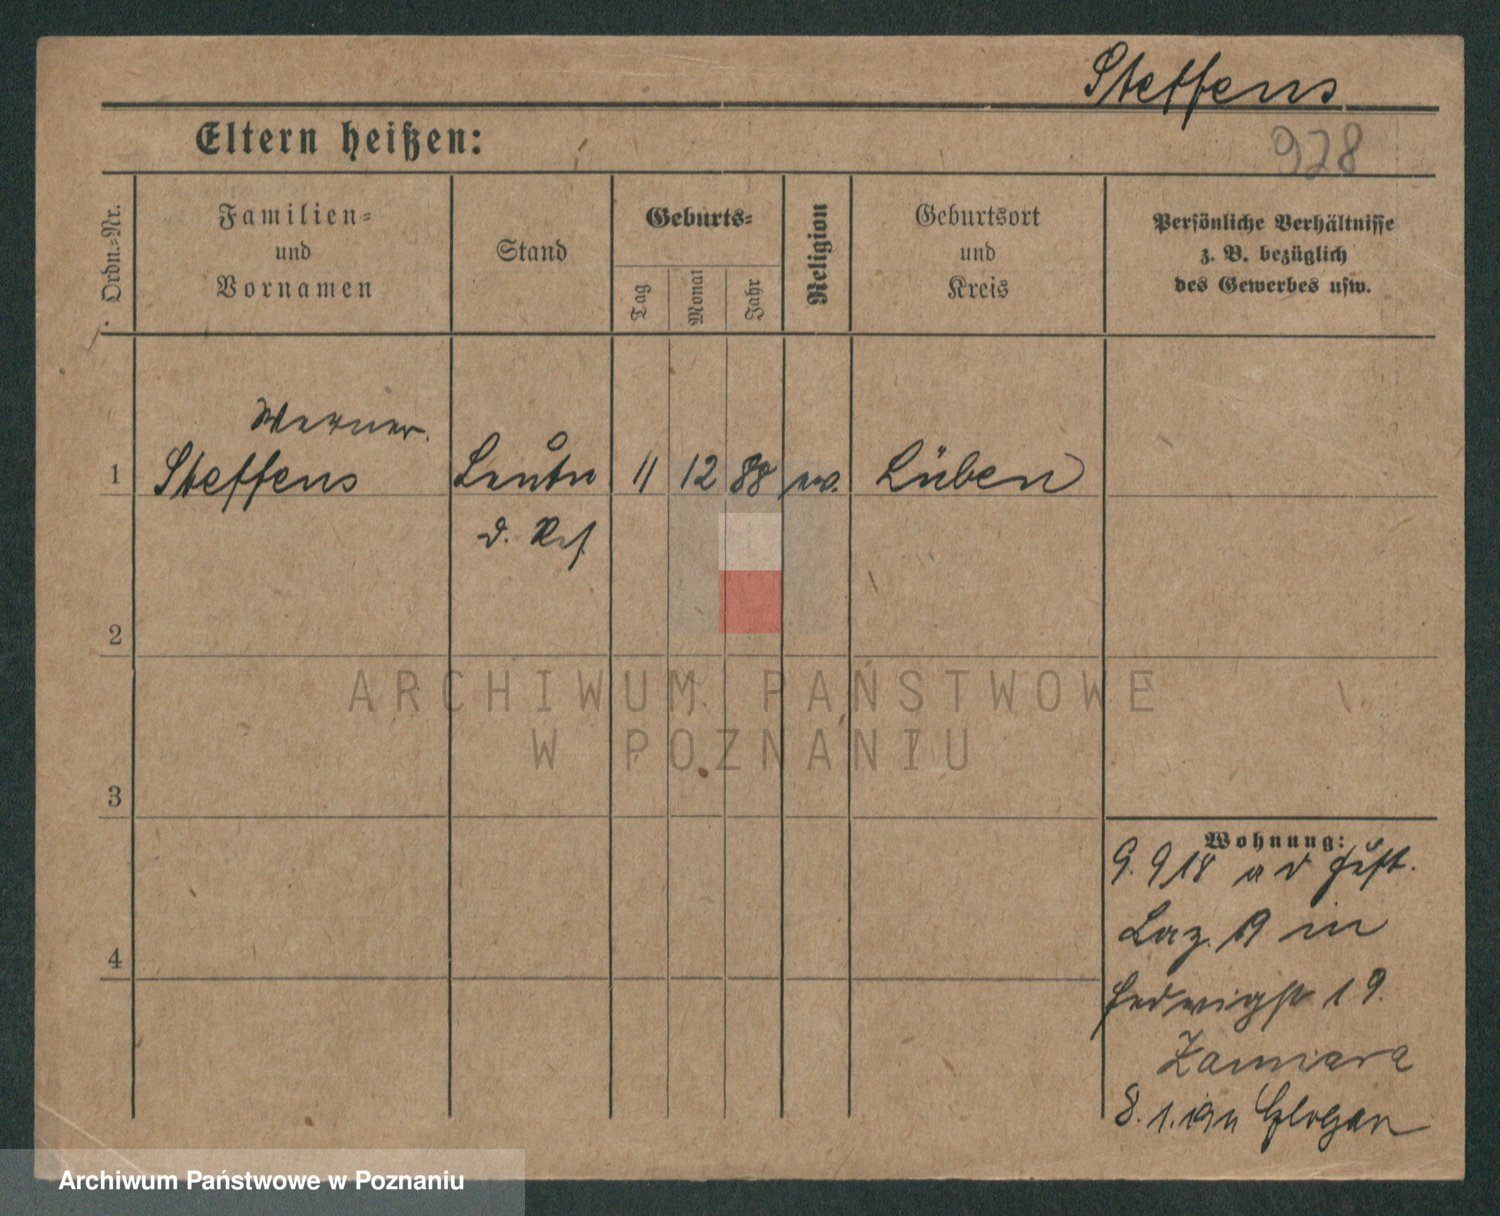 Steffens
Eltern heißen:
928
Ordn.-Nr.
Familien-
und
Vornamen
Stand
Geburts-
Tag
Monat
Jahr
Religion
Geburtsort
und
Kreis
Persönliche Verhältnisse
z. B. bezüglich
des Gewerbes usw.
Werner
1 Steffens Leutn 11 12 88 ev. Lüben
d. Res.
2
ARCHIWUM PAŃSTWOWE
W POZNANIU
3
4
Wohnung:
9. 9 18 a d
Laz. 19 in
Hedwigstr 19.
8. 1. 19 n Glogau
Archiwum Państwowe w Poznaniu